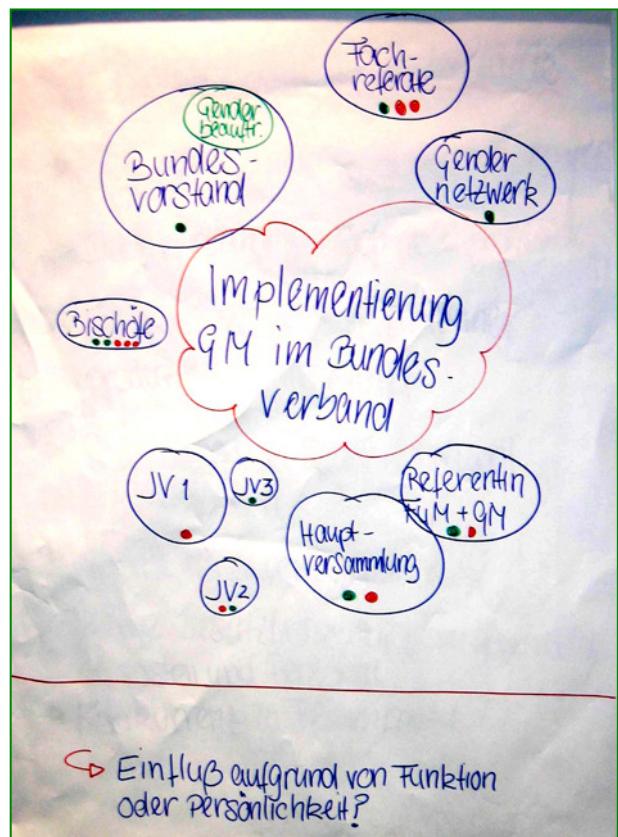 Fach-
referate
Gender
beauftr.
Bundes-
vorstand
Gender
netzwerk
Implementierung
GM im Bundes-
verband
Bischöfe
JV1
JV3
JV2
Haupt-
versammlung
Referentin
FuM + GM
Einfluß aufgrund von Funktion
oder Persönlichkeit?